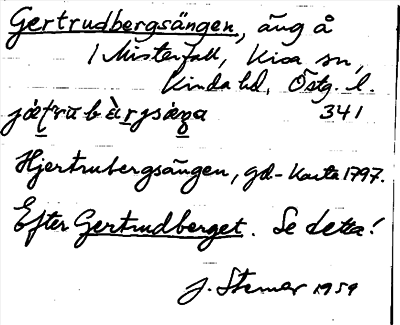 Gertrudbergsängen, äng å
/ Misterfall, Kisa sn,
Kinda hd, Östg. l.
341
Hjertrubergsängen, gd-Karta 1797.
Efter Gertrudberget. Se detta!
J. Sterner 1959